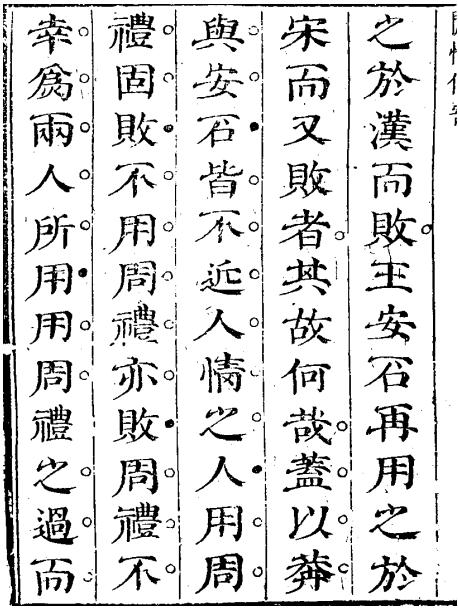 之於漢而敗王安石再用之於
宋而又敗者其故何哉蓋以莽
與安石皆不近人情之人用周
禮固敗不用周禮亦敗周禮不
幸爲兩人所用用周禮之過而